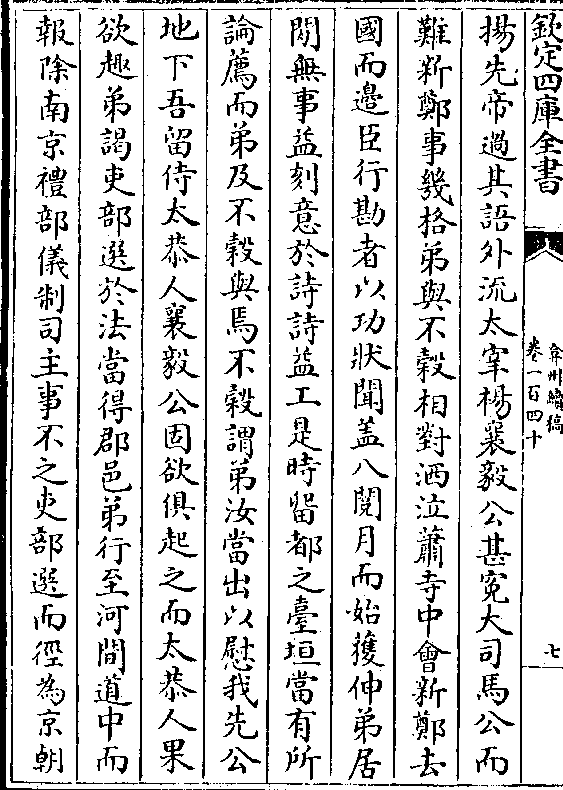 欽定四庫全書
弇州續稿
卷一百四十
七
揚先帝過其語外流太宰楊襄毅公甚寃大司馬公而
難新鄭事幾格弟與不糓相對洒泣蕭寺中會新鄭去
國而邊臣行勘者以功狀聞盖八閱月而始獲伸弟居
閒無事益刻意於詩詩益工是時留都之臺垣當有所
論薦而弟及不糓與焉不糓謂弟汝當出以慰我先公
地下吾留侍太恭人襄毅公固欲俱起之而太恭人果
欲趣弟謁吏部選於法當得郡邑弟行至河間道中而
報除南京禮部儀制司主事不之吏部選而徑為京朝